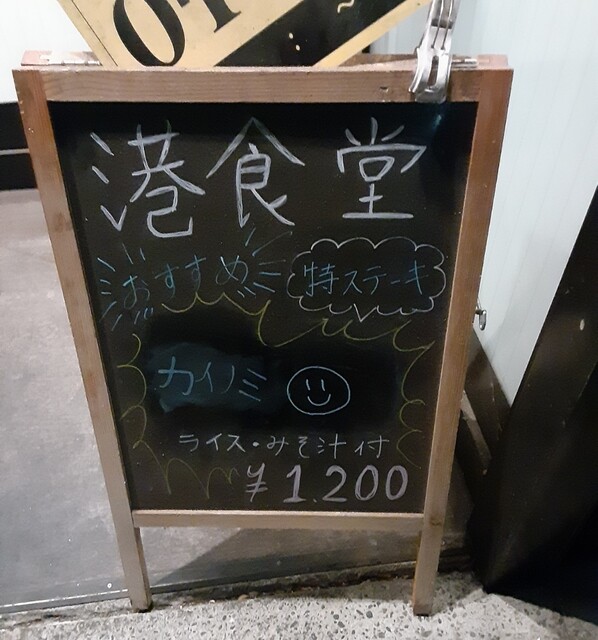 港食堂
おすすめ 特ステーキ
カイノミ
ライス・みそ汁付
¥1.200